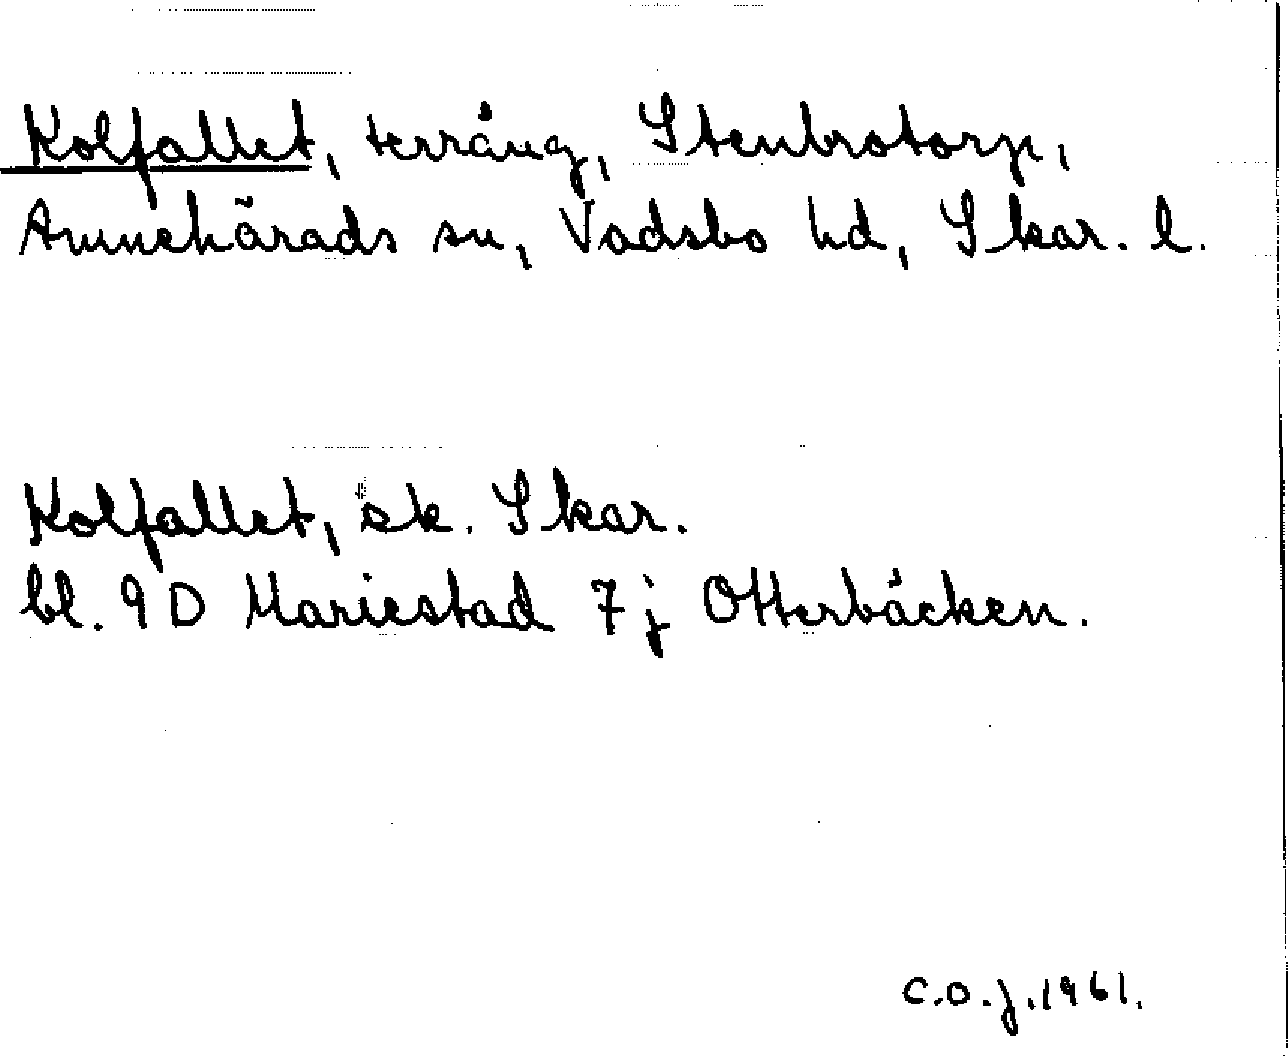 Kolfallet, terräng, Stenbrotorp,
Amnehärads sn, Vadsbo hd, Skar. l.
Kolfallet, sk. Skar.
bl. 9 D Mariestad 7 j Otterbäcken.
C.O.J. 1961.